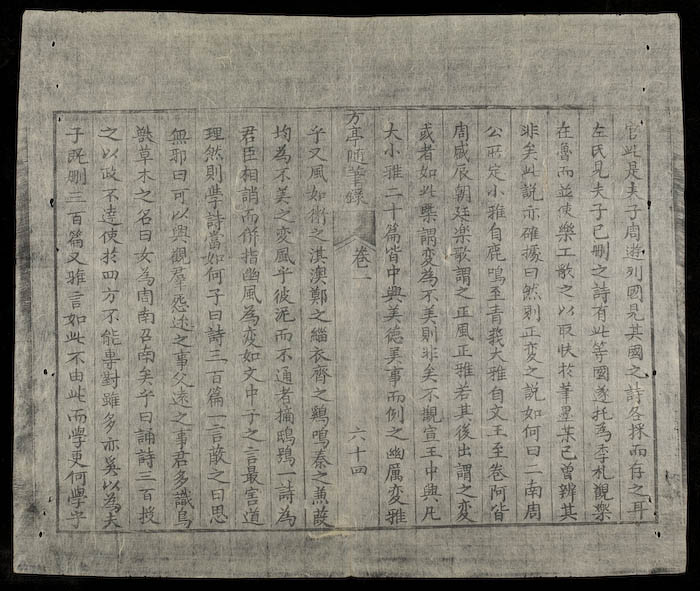 官此是夫子周遊列國見其國之詩各採而存之耳
左氏見夫子已删之詩有此等國遂托為季札觀樂
在魯而並使樂工歌之以取快於筆墨某已曾辨其
非矣此說亦確據曰然則正変之說如何曰二南周
公所定小雅自鹿鳴至菁莪大雅自文王至卷阿皆
周盛辰朝廷樂歌謂之正風正雅若其後出謂之変
或者如此槩謂変為不美則非矣不觀宣王中興凡
大小雅二十篇皆中興美德美事而例之幽厲変雅
方亭隨筆錄 卷二 六十四
乎又風如衛之淇澳鄭之緇衣齊之鷄鳴秦之蒹葭
均為不美之変風乎彼泥而不通者摘鴟鴞一詩為
君臣相誚而併指豳風為変如文中子之言最害道
理然則學詩當如何子曰詩三百篇一言蔽之曰思
無邪曰可以興觀羣怨迩之事父遠之事君多識鳥
獸草木之名曰女為周南召南矣乎曰誦詩三百授
之以政不達使於四方不能專對雖多亦奚以為夫
子既刪三百篇又雅言如此不由此而學更何學乎